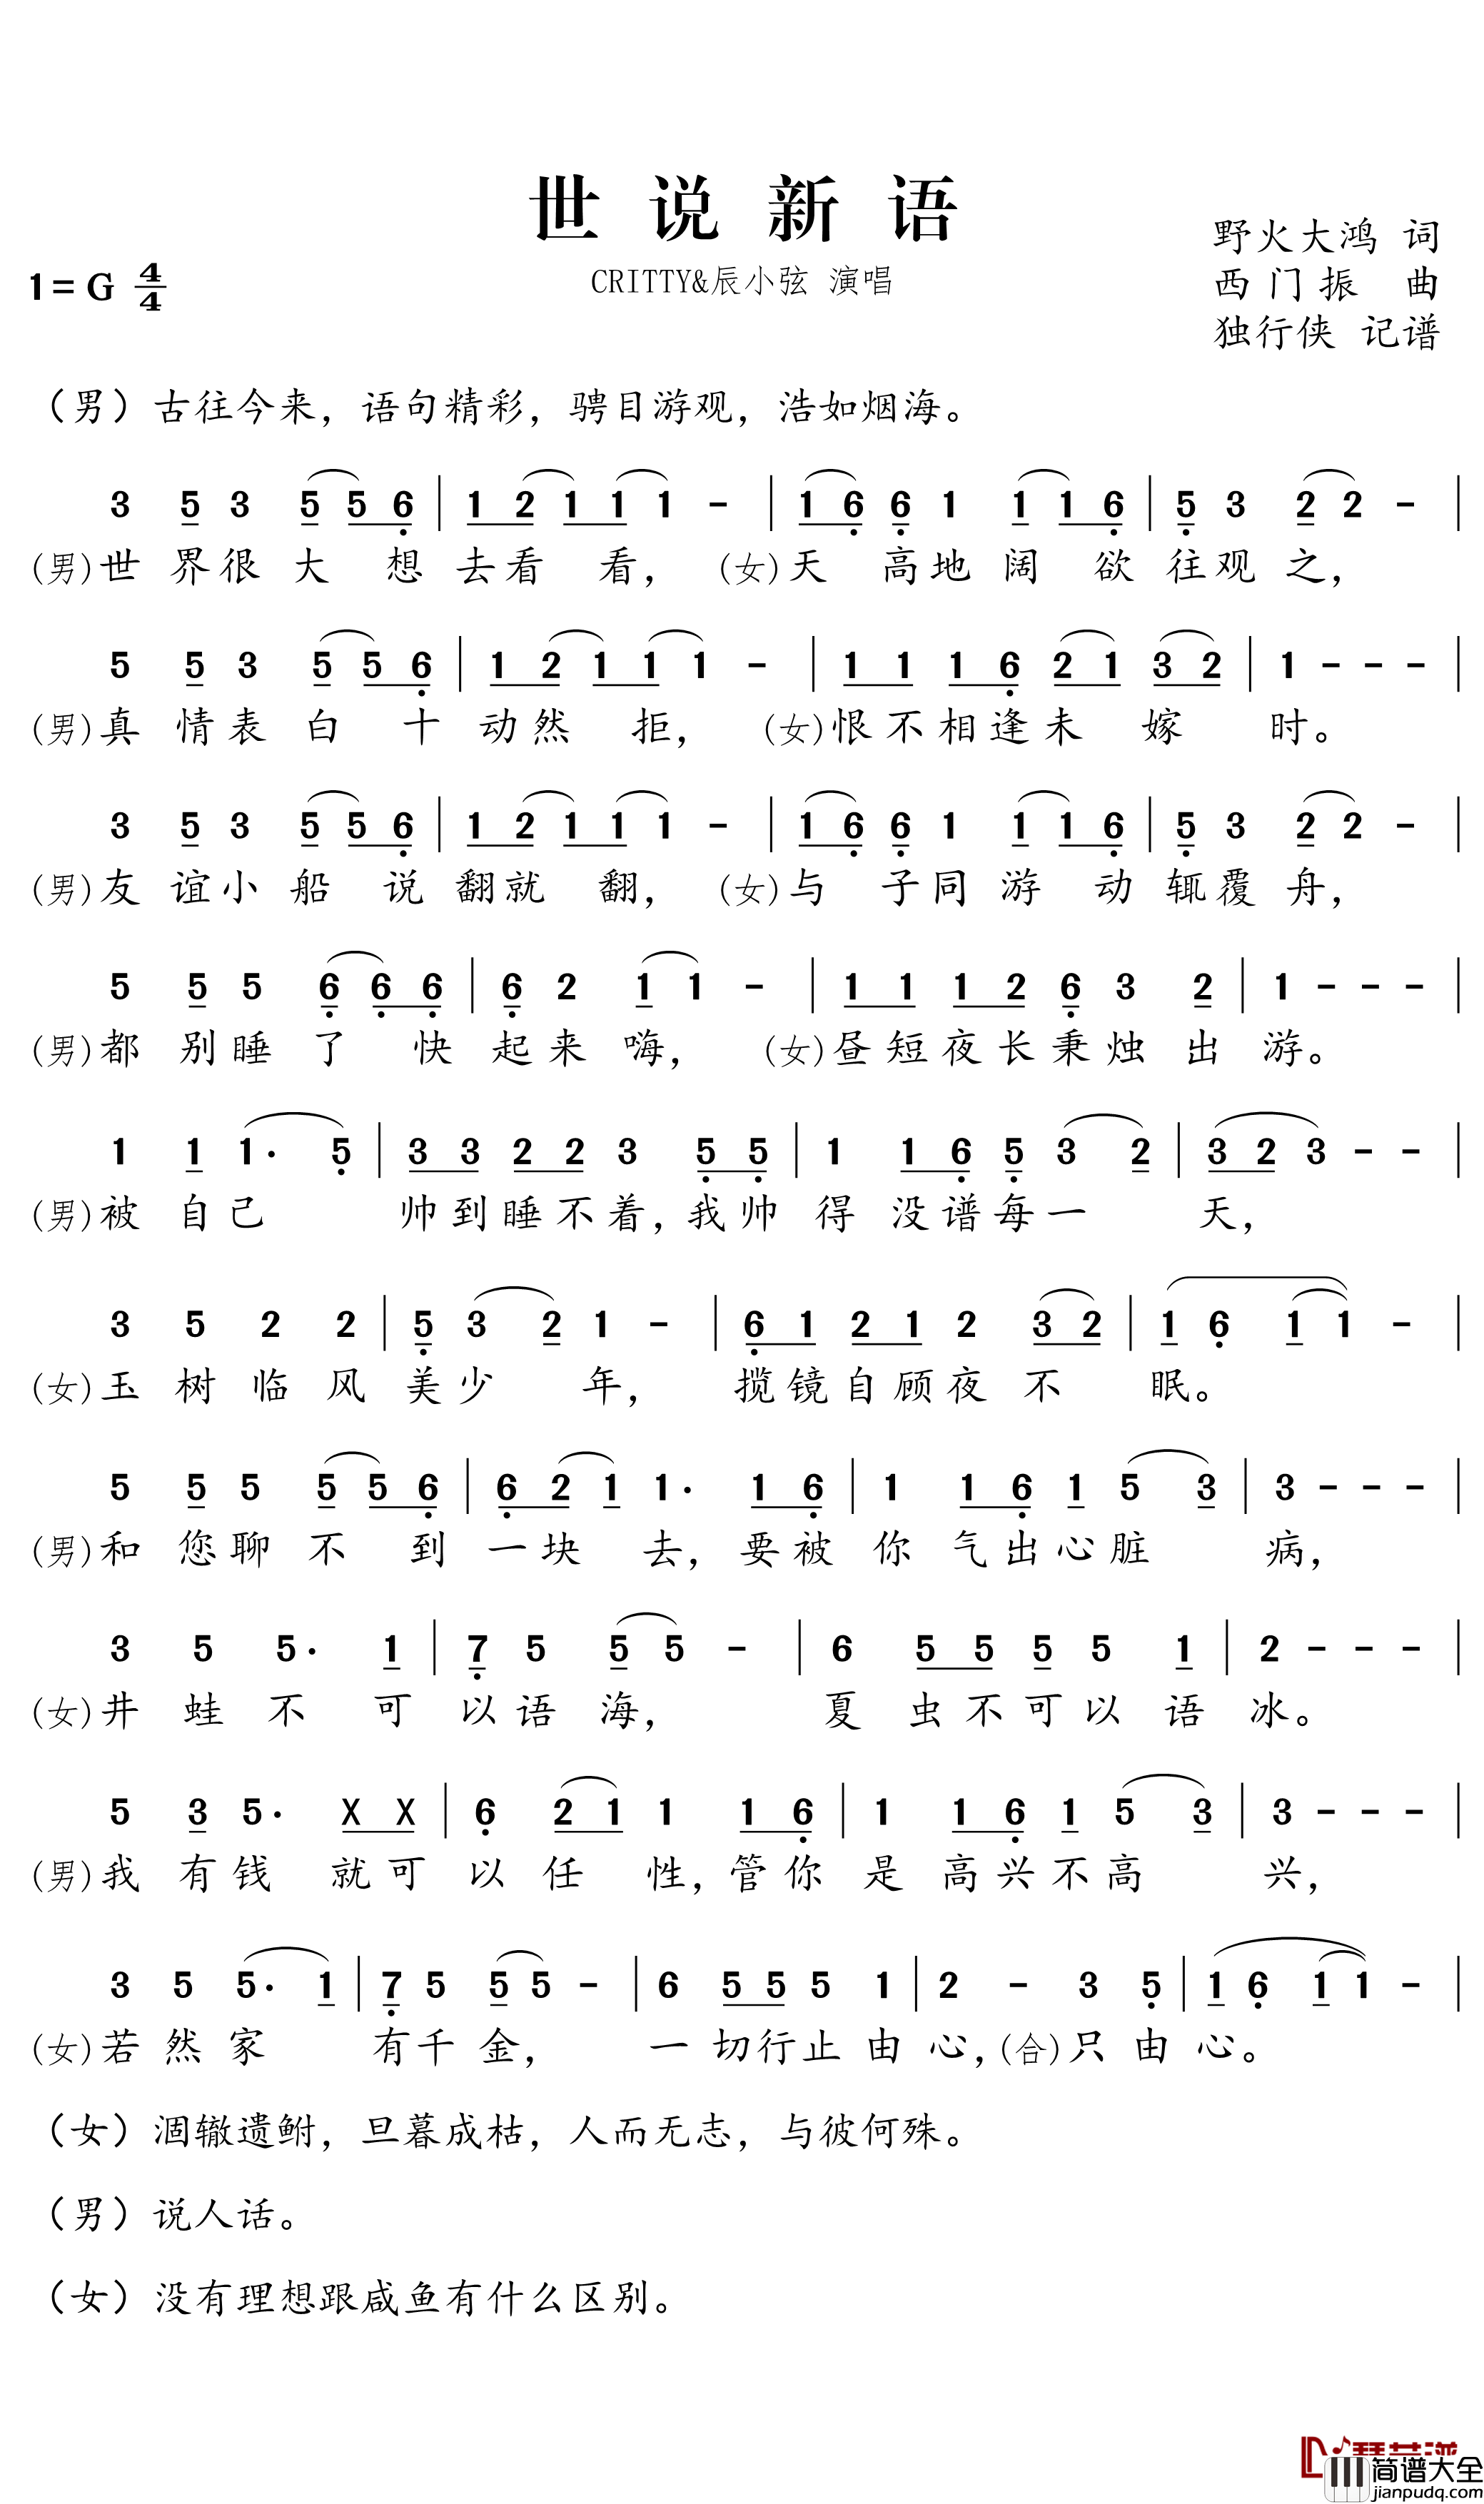 世说新语
野火大鸿 词
1= G 4/4
CRITTY&辰小弦 演唱
西门振 曲
独行侠 记谱
（男）古往今来，语句精彩，骋目游观，浩如烟海。
3 5 3 5 5 6 | 1 2 1 1 1 - | 1 6 6 1 1 1 6 | 5 3 2 2 - |
(男)世界很大想去看看，(女)天高地阔欲往观之，
5 5 3 5 5 6 | 1 2 1 1 1 - | 1 1 1 6 2 1 3 2 | 1 - - - |
(男)真情表白十动然拒，(女)恨不相逢未嫁时。
3 5 3 5 5 6 | 1 2 1 1 1 - | 1 6 6 1 1 1 6 | 5 3 2 2 - |
(男)友谊小船说翻就翻，(女)与子同游动辄覆舟，
5 5 5 6 6 6 | 6 2 1 1 - | 1 1 1 2 6 3 2 | 1 - - - |
(男)都别睡了快起来嗨，(女)昼短夜长秉烛出游。
1 1 1· 5 | 3 3 2 2 3 5 5 | 1 1 6 5 3 2 | 3 2 3 - - |
(男)被自己帅到睡不着，我帅得没谱每一天，
3 5 2 2 | 5 3 2 1 - | 6 1 2 1 2 3 2 | 1 6 1 1 - |
(女)玉树临风美少年，揽镜自顾夜不眠。
5 5 5 5 5 6 | 6 2 1 1· 1 6 | 1 1 6 1 5 3 | 3 - - - |
(男)和您聊不到一块去，要被你气出心脏病，
3 5 5· 1 | 7 5 5 5 - | 6 5 5 5 5 1 | 2 - - - |
(女)井蛙不可以语海，夏虫不可以语冰。
5 3 5· X X | 6 2 1 1 1 6 | 1 1 6 1 5 3 | 3 - - - |
(男)我有钱就可以任性，管你是高兴不高兴，
3 5 5· 1 | 7 5 5 5 - | 6 5 5 5 1 | 2 - 3 5 | 1 6 1 1 - |
(女)若然家有千金，一切行止由心，(合)只由心。
（女）涸辙遗鲋，旦暮成枯，人而无志，与彼何殊。
（男）说人话。
（女）没有理想跟咸鱼有什么区别。
简谱大全
jianpudq.com